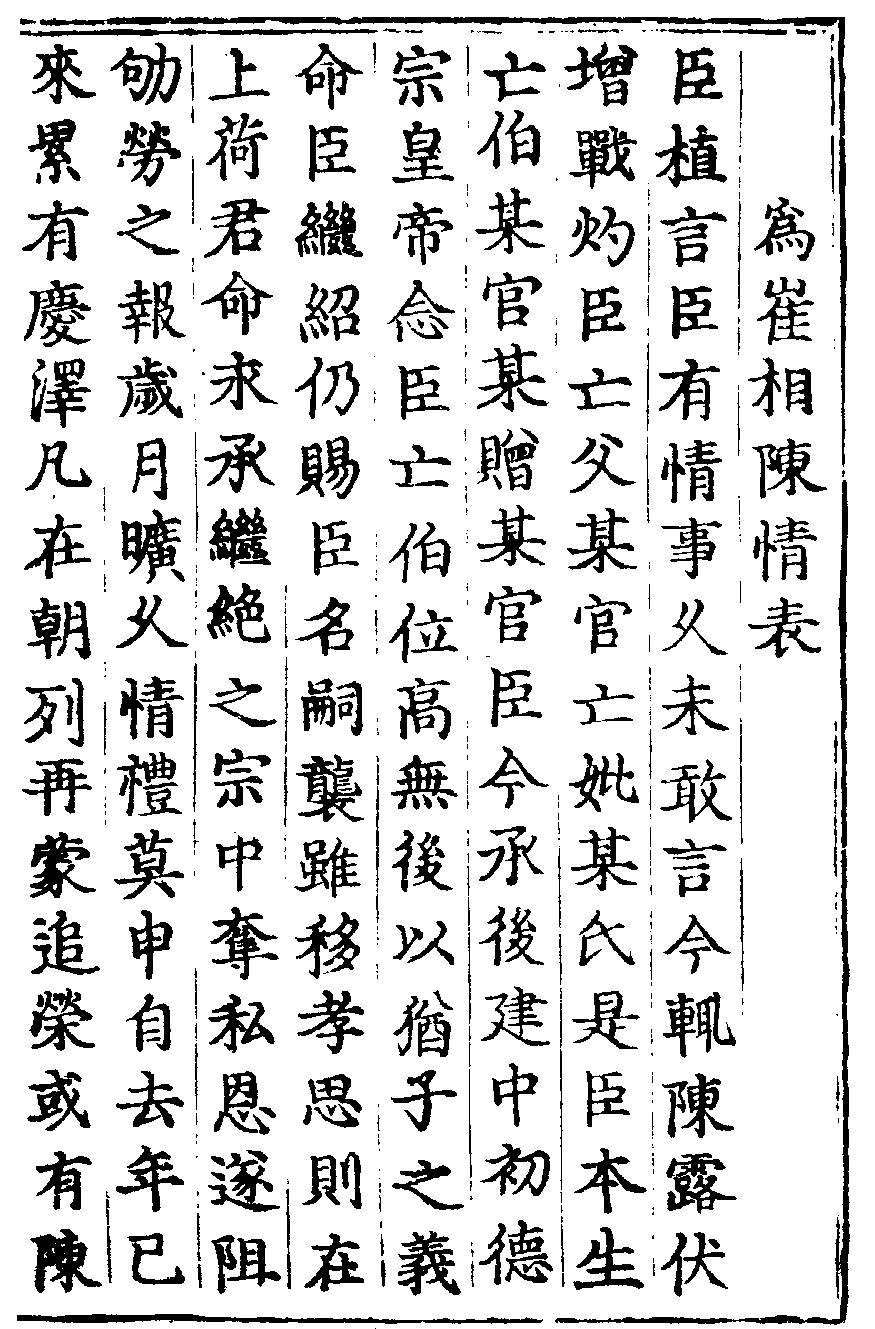 為崔相陳情表
臣植言臣有情事乆未敢言今輒陳露伏
增戰灼臣亡父某官亡妣某氏是臣本生
亡伯某官某贈某官臣今承後建中初德
宗皇帝念臣亡伯位高無後以猶子之義
命臣繼紹仍賜臣名嗣襲雖移孝思則在
上荷君命求承繼絕之宗中奪私恩遂阻
劬勞之報歲月曠乆情禮莫申自去年已
來累有慶澤凡在朝列再蒙追榮或有陳